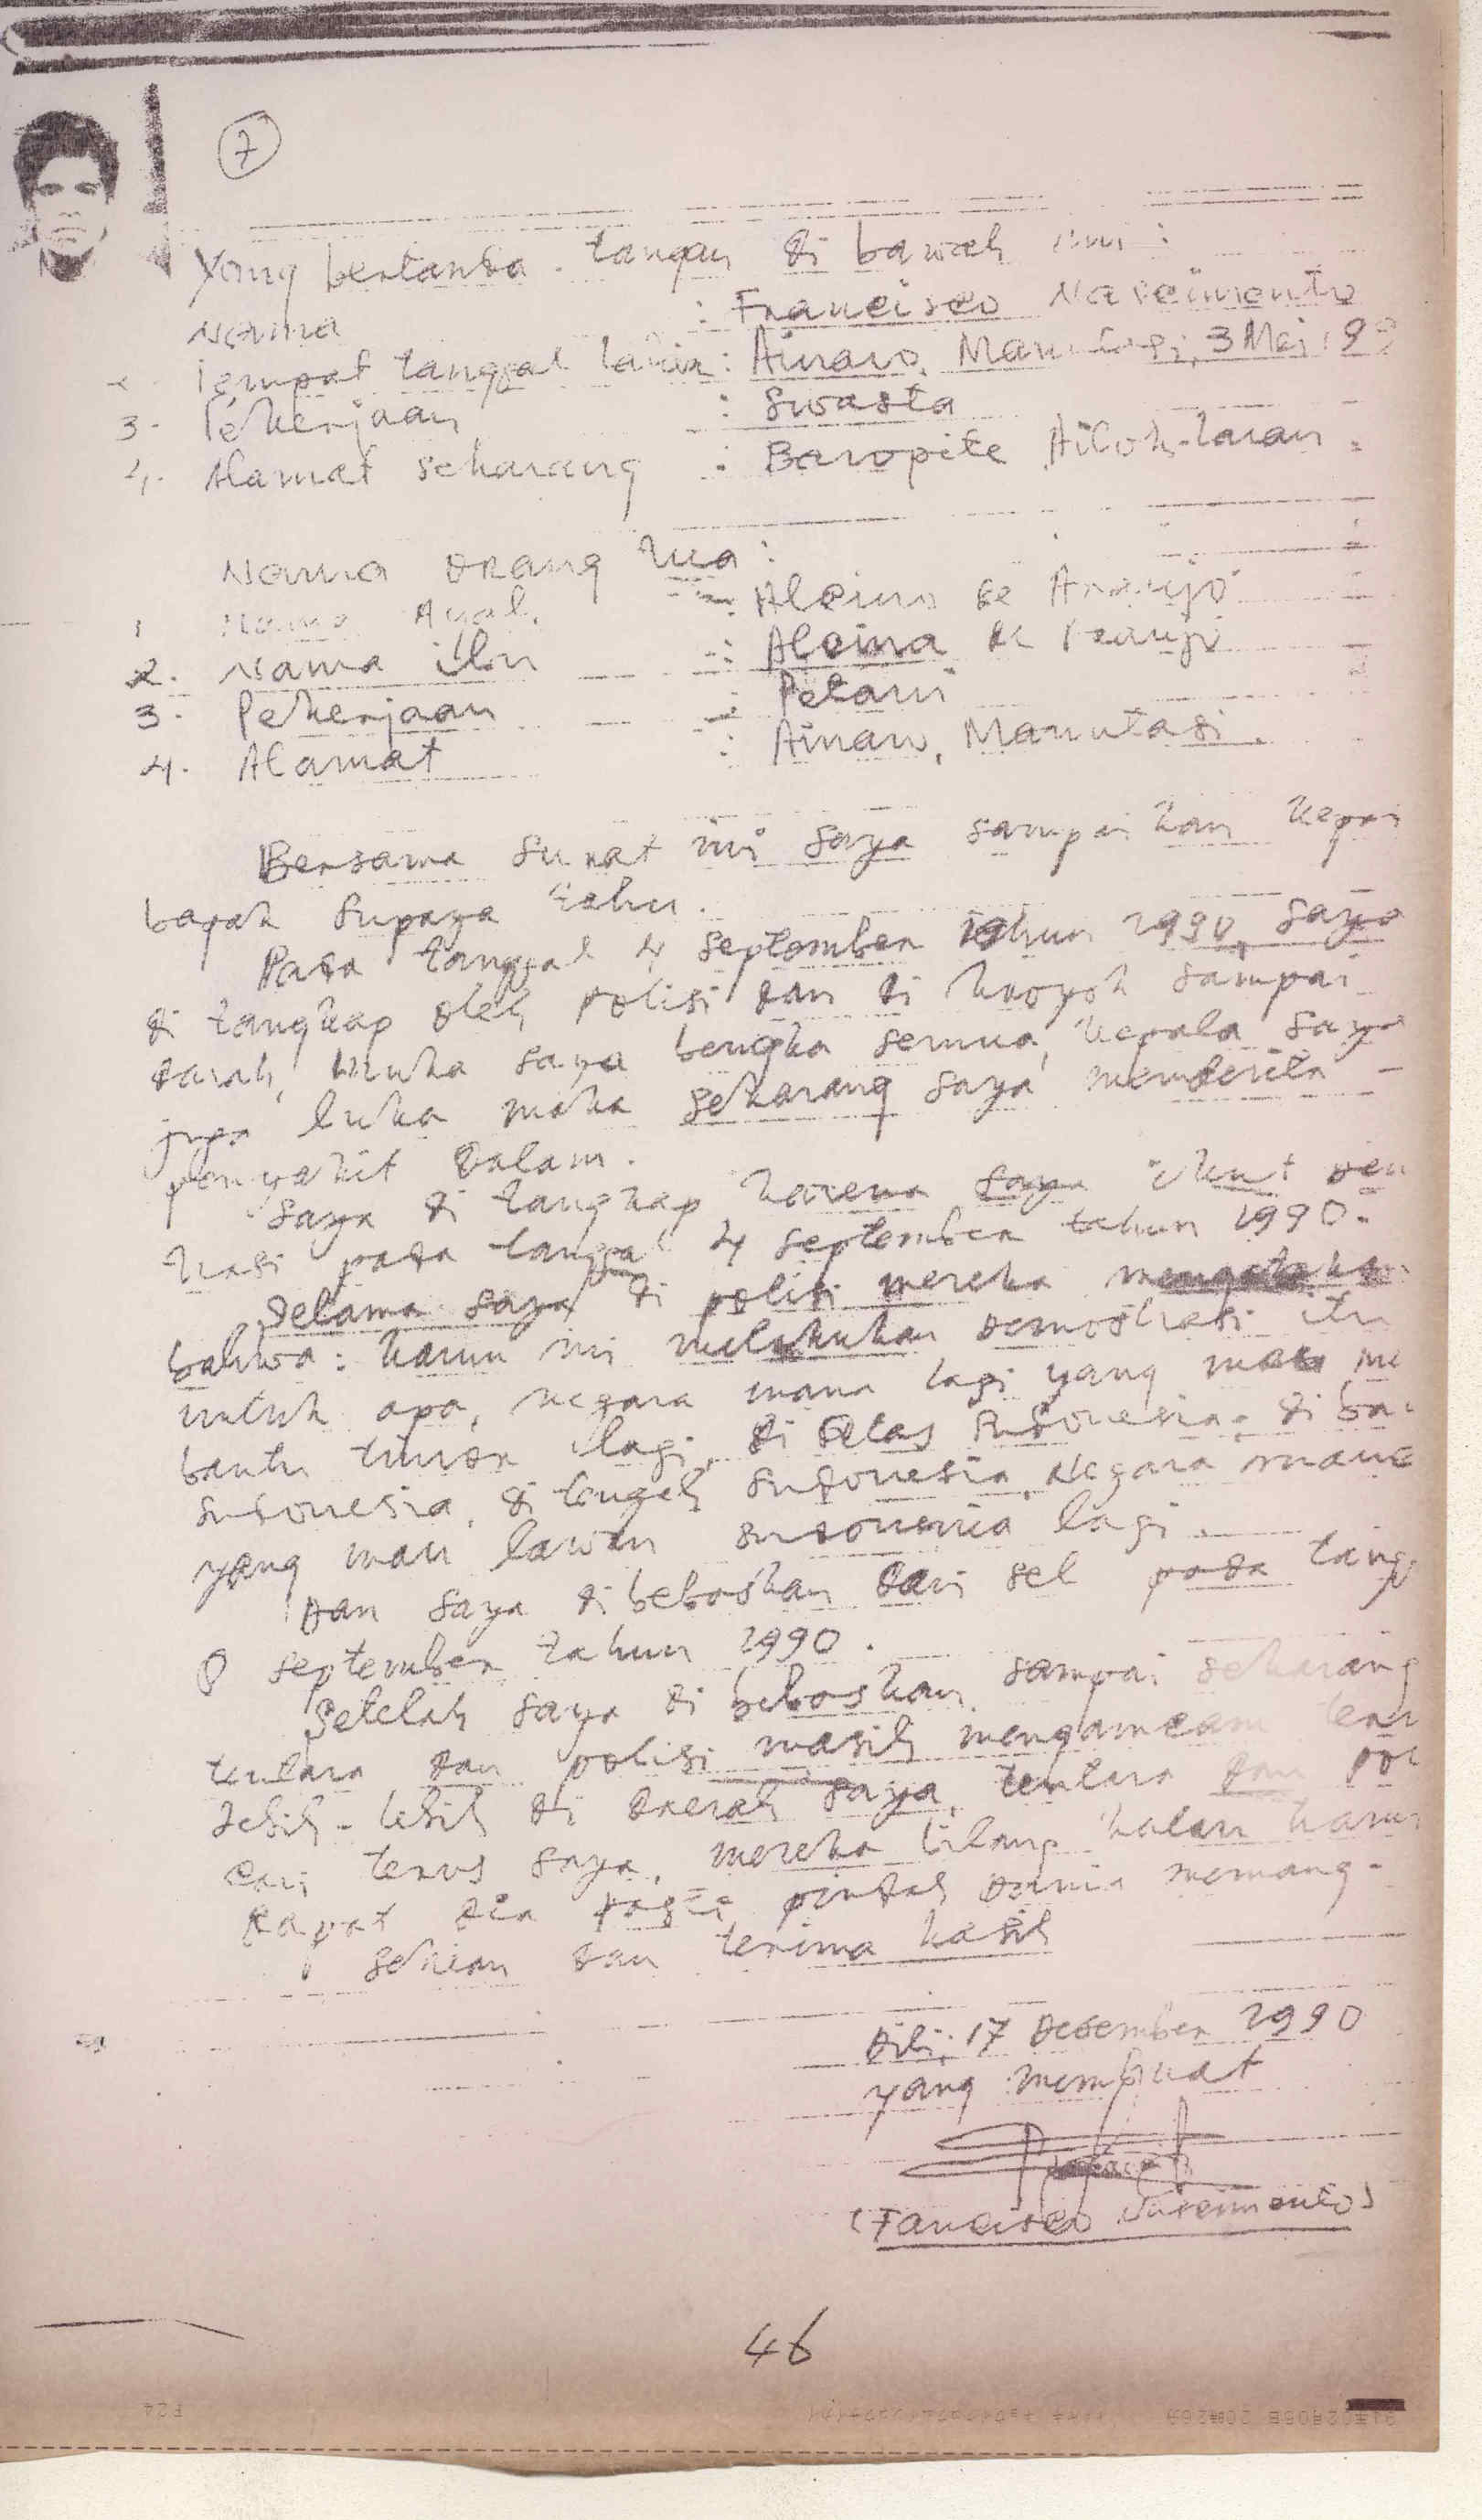 7
Yang bertanda tangan di bawah ini :
Nama : Francisco Nascimento
Tempat tanggal lahir : Ainaro, 3 Mei
3. Pekerjaan : Swasta
4. Alamat sekarang : Baropite
Nama orang tua :
1 Nama Ayah : Alcino de Araujo
2. Nama ibu : Alcina de
3. Pekerjaan : Petani
4. Alamat : Ainaro, Manutasi.
Bersama surat ini saya sampaikan kepa
bapak supaya tahu.
Pada tanggal 4 september tahun 1990, saya
di tangkap oleh polisi dan di kroyok sampai
darah, muka saya bengka semua, kepala saya
juga luka maka sekarang saya menderita -
penyakit dalam.
Saya di tangkap karena saya ikut dem
trasi pada tanggal 4 september tahun 1990.
Selama saya di polisi mereka mengatakan
bahwa : kamu ini melakukan demostrasi itu
untuk apa, negara mana lagi yang mau me
bantu timor lagi, di atas Indonesia, di ba
Indonesia, di tengah Indonesia, Negara mana
yang mau lawan Indonesia lagi.
Dan saya di bebaskan dari sel pada tangg
8 september tahun 1990.
Setelah saya di bebaskan sampai sekarang
tentara dan polisi masih mengancam teru
lebih-lebih di daerah saya, tentara dan pol
cari terus saya, mereka bilang kalau kamu
dapat dia pasti pindah dunia memang.
Sekian dan terima kasih
Dili, 17 Desember 1990
yang membuat
(Fancisco Nascimento)
46